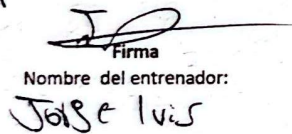 Firma
Nombre del entrenador:
Jorge luis